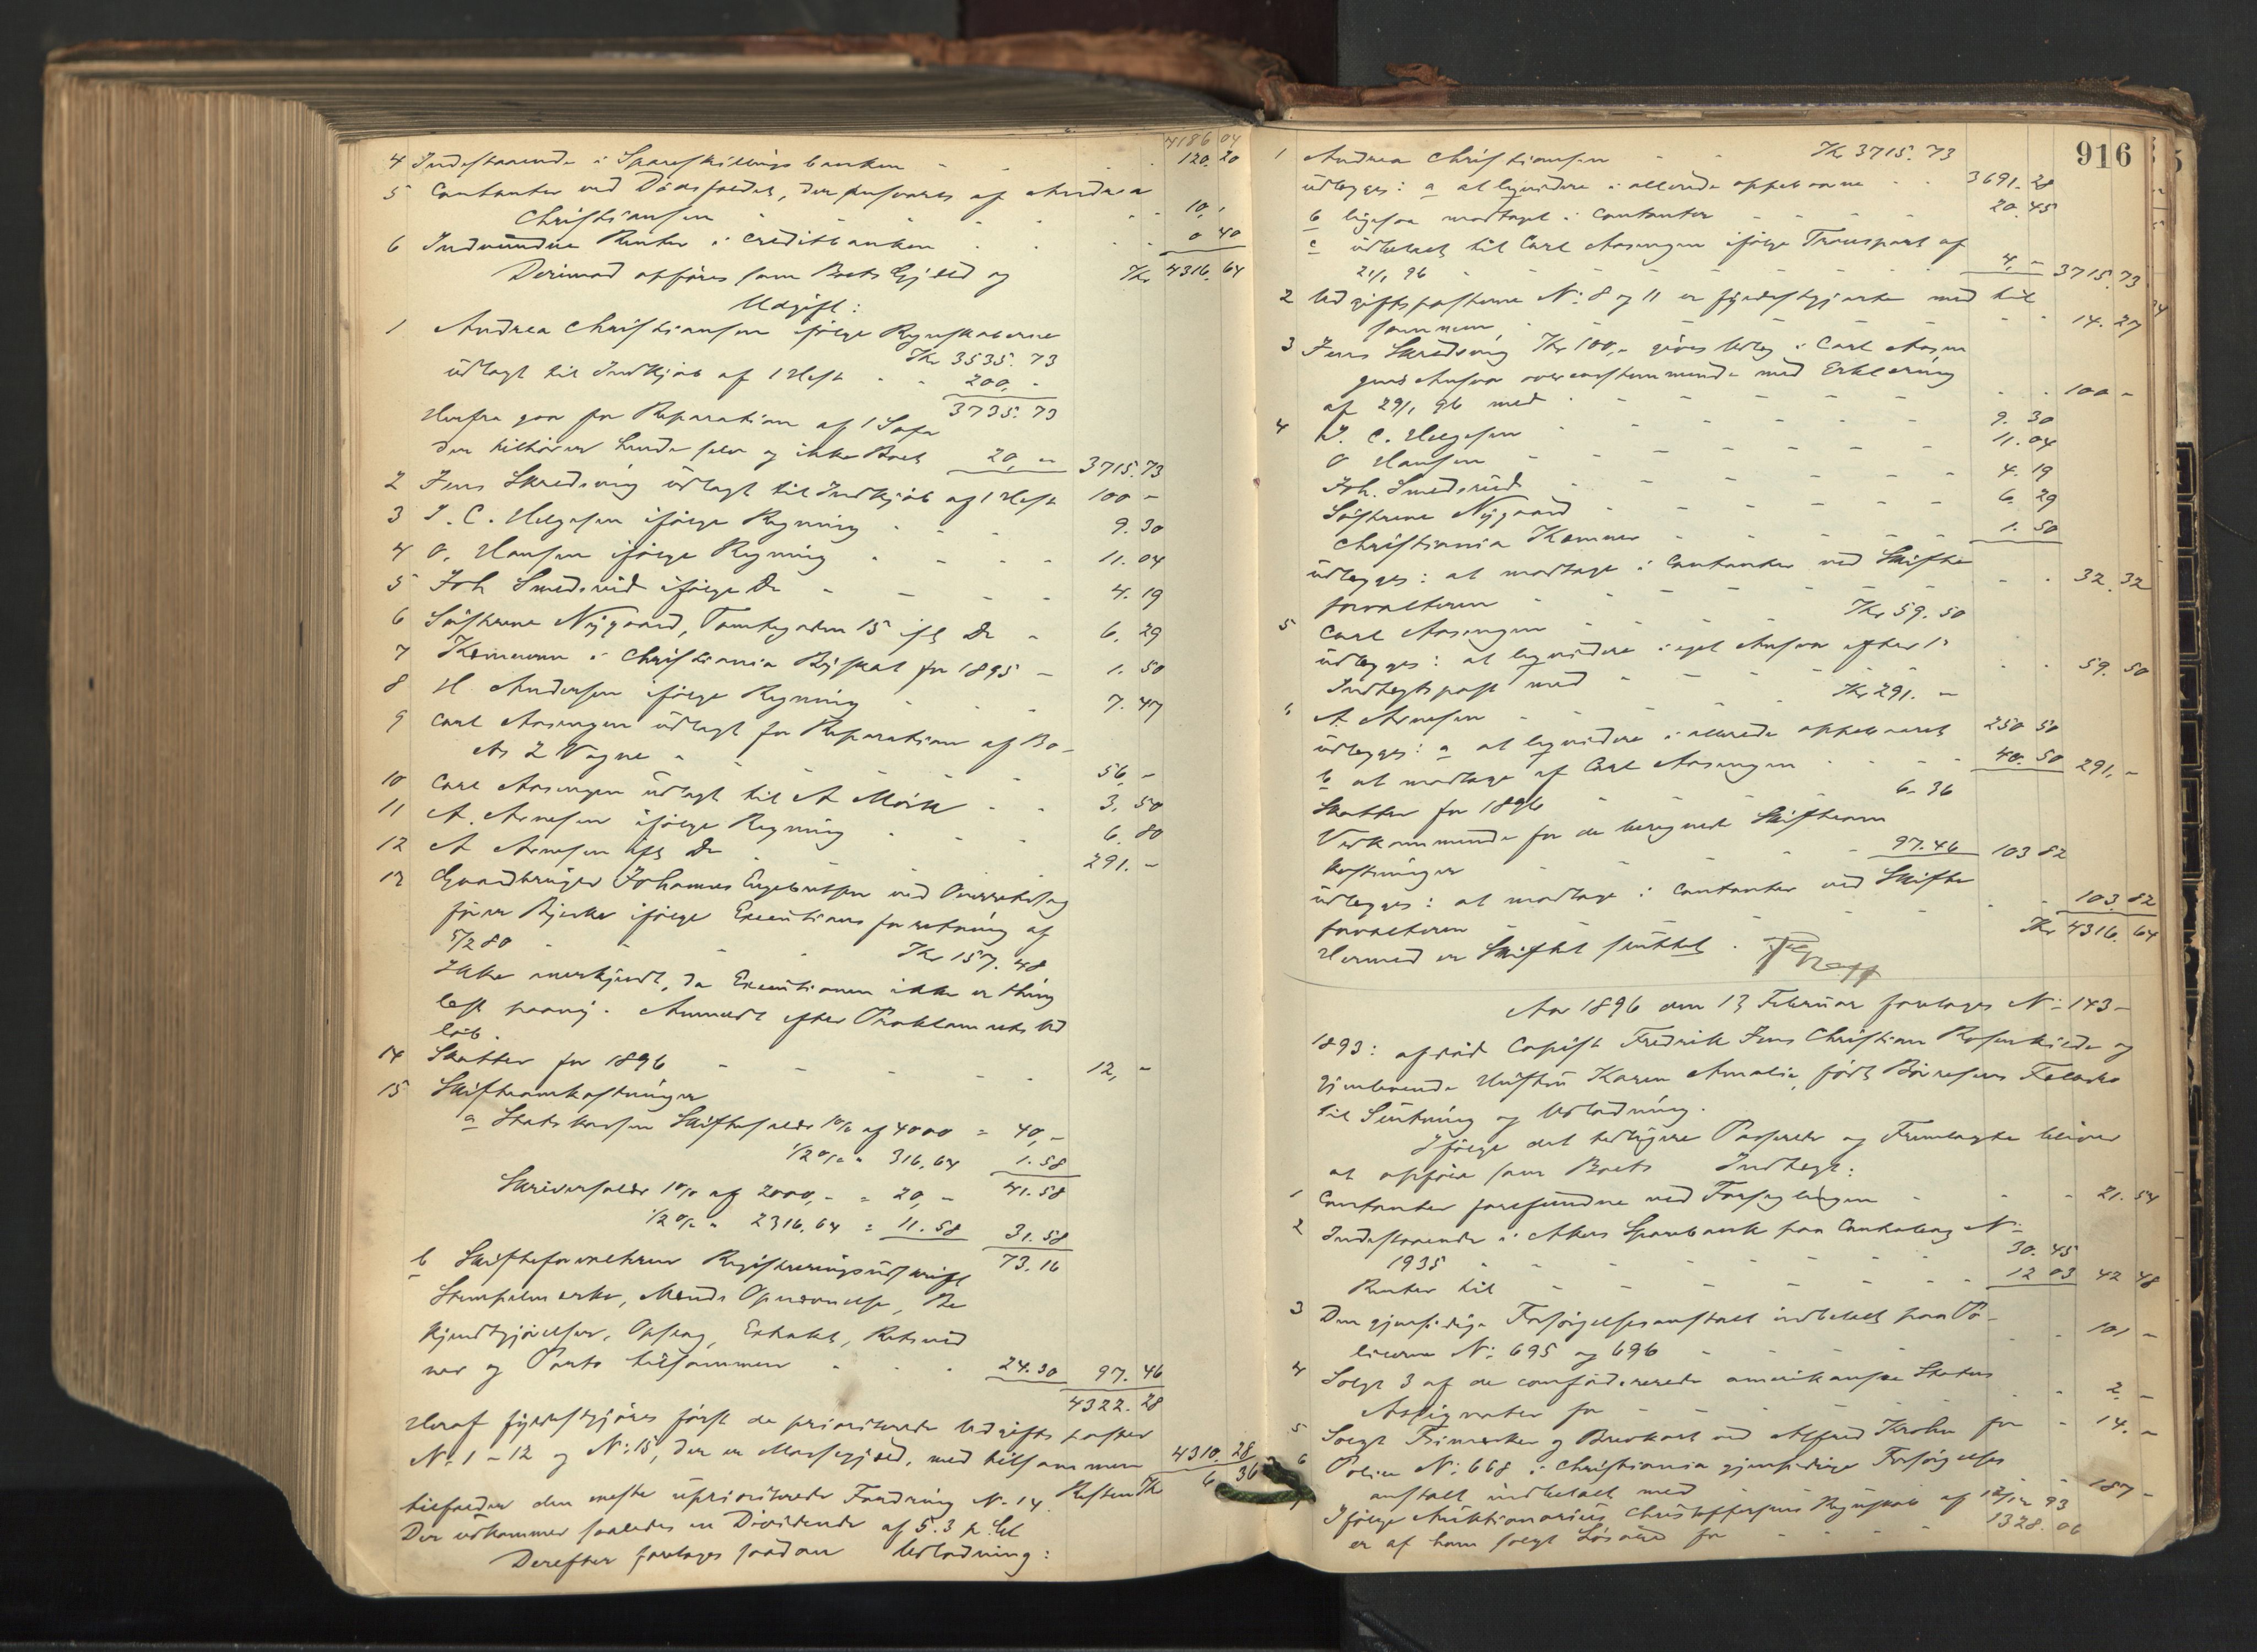 4186 04
4 Indestaaende i Spareskillingsbanken - 120. 20
5 Contanter ved Dødsfaldet, der ansvares af Andrea
Christiansen - 10, -
6 Indvundne Renter i Creditbanken 0 40
Derimod opføres som Boets Gjeld og Kr 4316. 64
Udgift:
1 Andrea Christiansen ifølge Regnskaberne
Kr 3535. 73
udlagt til Indkjøb af 1 Hest - - 200, -
3735. 73
Herfra gaar for Reparation af 1 Sofa
der tilhører hende selv og ikke Boet 20, - 3715. 73
2 Jens Skredsvig udlagt til Indkjøb af 1 Hest 100 -
3 J. C. Helgesen ifølge Regning - - 9. 30
4 O. Hansen ifølge Regning - - 11. 04
5 Joh Smedsrud ifølge Do - - 4. 19
6 Søstrene Nygaard, Tomtegaden 15 ifg Do - 6. 29
7 Kæmneren i Christiania Byskat for 1895 - 1. 50
8 H. Andersen ifølge Regning - - 7. 47
9 Carl Aasengen udlagt for Reparation af Bo-
ets 2 Vogne - - 56, -
10 Carl Aasengen udlagt til A Mørk - - 3, 50
11 A. Arnesen ifølge Regning - - 6. 80
12 A Arnesen ifg Do - 291. -
13 Gaardbruger Johannes Engebretsen ved Overretssag
fører Bjerke ifølge Executionsforretning af
5/2 80 - - Kr 157. 48
Ikke anerkjendt, da Executionen ikke er thing
lest paany. Anmeldt efter Proklamaets Ud
løb.
14 Skatter for 1896 - - 12, -
15 Skifteomkostninger
a Statskassen Skiftesalær 1% af 4000 = 40, -
1/2 % " 316. 64 1. 58
Skriversalær 1% af 2000, - = 20, - 41. 58
1/2 % " 2316. 64 = 11. 58 31. 58
b Skifteforvalteren Registreringsudskrift 73. 16
Stempelmærke, Mænds Opnævnelse, Be
kjendtgjørelser, Opslag, Extrakt, Retsvid
ner og Porto tilsammen - - 24. 30 97. 46
4322. 28
Heraf fyldestgjøres først de prioriterede Udgiftsposter
N: 1 - 12 og N: 15, der er Massegjeld, med tilsammen 4310. 28
Resten Kr 6 36
tilfalder den eneste uprioriterede Fordring N: 14.
Der udkommer saaledes en Dividende af 5.3 p Ct
Derefter foretages saadan Udlodning:
916
1 Andrea Christiansen - - Kr 3715. 73
udlægges: a at liqvidere i allerede oppebaarne - - 3691. 28
b ligesaa modtaget i Contanter - - 20. 45
c udbetalt til Carl Aasengen ifølge Transport af
21/1 96 - - 4, - 3715. 73
2 Udgiftsposterne N: 8 og 11 er fyldestgjorte med til
sammen - - 14. 27
3 Jens Skredsvig Kr 100, - gives Udlæg i Carl Aasen
gens Ansvar overensstemmende med Erklæring
af 29/1 96 med - - 100 -
4 J. C. Helgesen - - 9. 30
O Hansen - - 11. 04
Joh. Smedsrud - - 4. 19
Søstrene Nygaard - - 6. 29
Christiania Kæmner - - 1. 50
udlægges: at modtage i Contanter ved Skifte
forvalteren - - 32. 32
5 Carl Aasengen - - Kr 59. 50
udlægges: at liqvidere i eget Ansvar efter 1
Indtægtspost med - - 59. 50
6 A Arnesen - - Kr 291. -
udlægges: a at liqvidere i allerede oppebaaret 250 50
b at modtage af Carl Aasengen - - 40. 50 291, -
Skatter for 1896 - - 6. 36
Vedkommende for de beregnede Skifteom
kostninger - - 97. 46 103 82
udlægges: at modtage i Contanter ved Skifte
forvalteren - - 103. 82
Hermed er Skiftet sluttet. Kr 4316. 64
Aar 1896 den 13 Februar foretoges N: 143-
1893: afdød Copist Fredrik Jens Christian Rosenkilde og
gjenlevende Hustru Karen Amalie, født Børresens Fællesbo
til Slutning og Udlodning.
Ifølge det tidligere Passerede og Fremlagte bliver
at opføre som Boets Indtægt:
1 Contanter forefundne ved Forseglingen - - 21. 54
2 Indestaaende i Akers Sparebank paa Contobog N:
1935 - - 30. 45
Renter til - - 12 03 42 48
3 Den gjensidige Forsørgelsesanstalt indbetalt paa Po-
licerne N: 695 og 696 - - 101 -
4 Solgt 3 af de confødererede amerikanske Staters
Assignater for - - 2. -
5 Solgt Frimærker og Brevkort ved Alfred Krohn for - 14. -
6 Police N: 668 i Christiania gjensidige Forsørgelses
anstalt indbetalt med - - 187 -
7 Ifølge Auktionarius Christophersens Regnskab af 12/12 93
er af ham solgt Løsøre for - - 1328. 06